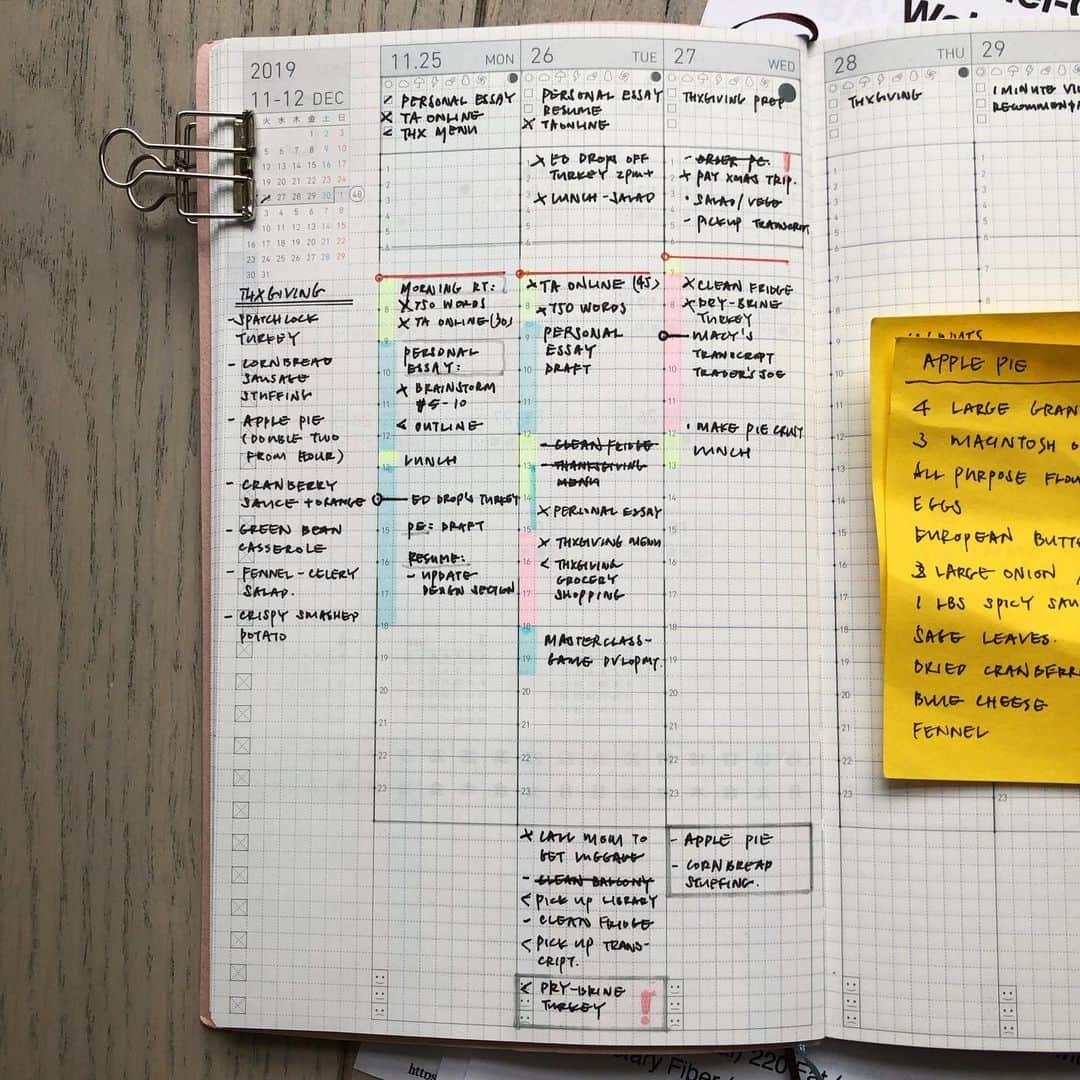 2019
11-12 DEC
火 水 木 金 土 日
1 2 3
5 6 7 8 9 10
12 13 14 15 16 17
19 20 21 22 23 24
27 28 29 30 1 48
3 4 5 6 7 8
16 17 18 19 20 21 22
23 24 25 26 27 28 29
30 31
THXGIVING
- SPATCHLOCK
TURKEY
- CORNBREAD
SAUSAGE
STUFFING
- APPLE PIE
(DOUBLE TWO
FROM HOUR)
- CRANBERRY
SAUCE + ORANGE
- GREEN BEAN
CASSEROLE
- FENNEL-CELERY
SALAD.
- CRISPY SMASHED
POTATO
11.25 MON
PERSONAL ESSAY
X TA ONLINE
< THX MENU
MORNING RT:
X 750 WORDS
X TA ONLINE (30)
PERSONAL
ESSAY:
X BRAINSTORM
#5-10
< OUTLINE
LUNCH
ED DROPS TURKEY
PE: DRAFT
RESUME:
- UPDATE
DESIGN SECTION
26 TUE
PERSONAL ESSAY
RESUME
X TA ONLINE
X ED DROPS OFF
TURKEY 2PM+
X LUNCH - SALAD
X TA ONLINE (45)
X 750 WORDS
PERSONAL
ESSAY
DRAFT
- CLEAN FRIDGE
- THANKSGIVING
MENU
X PERSONAL ESSAY
X THXGIVING MENU
< THXGIVING
GROCERY
SHOPPING
MASTERCLASS-
GAME DVLOPMT.
X CALL MOM TO
GET LUGGAGE
- CLEAN BALCONY
< PICK UP LIBRARY
- CLEAN FRIDGE
< PICK UP TRANS-
CRIPT.
< DRY-BRINE
TURKEY !
27 WED
THXGIVING PREP
- ORDER PC. !
+ PAY XMAS TRIP.
• SALAD/VEGG
- PICKUP TRANSCRIPT
X CLEAN FRIDGE
X DRY-BRINE
TURKEY
MACY'S
TRANSCRIPT
TRADER'S JOE
• MAKE PIE CRUST
LUNCH
- APPLE PIE
- CORNBREAD
STUFFING.
28 THU
THXGIVING
29
1 MINUTE
APPLE PIE
4 LARGE GRAN
3 MACINTOSH
ALL PURPOSE FLOU
EGGS
EUROPEAN BUTTE
3 LARGE ONION
1 LBS SPICY SAU
SAGE LEAVES.
DRIED CRANBERR
BLUE CHEESE
FENNEL
https